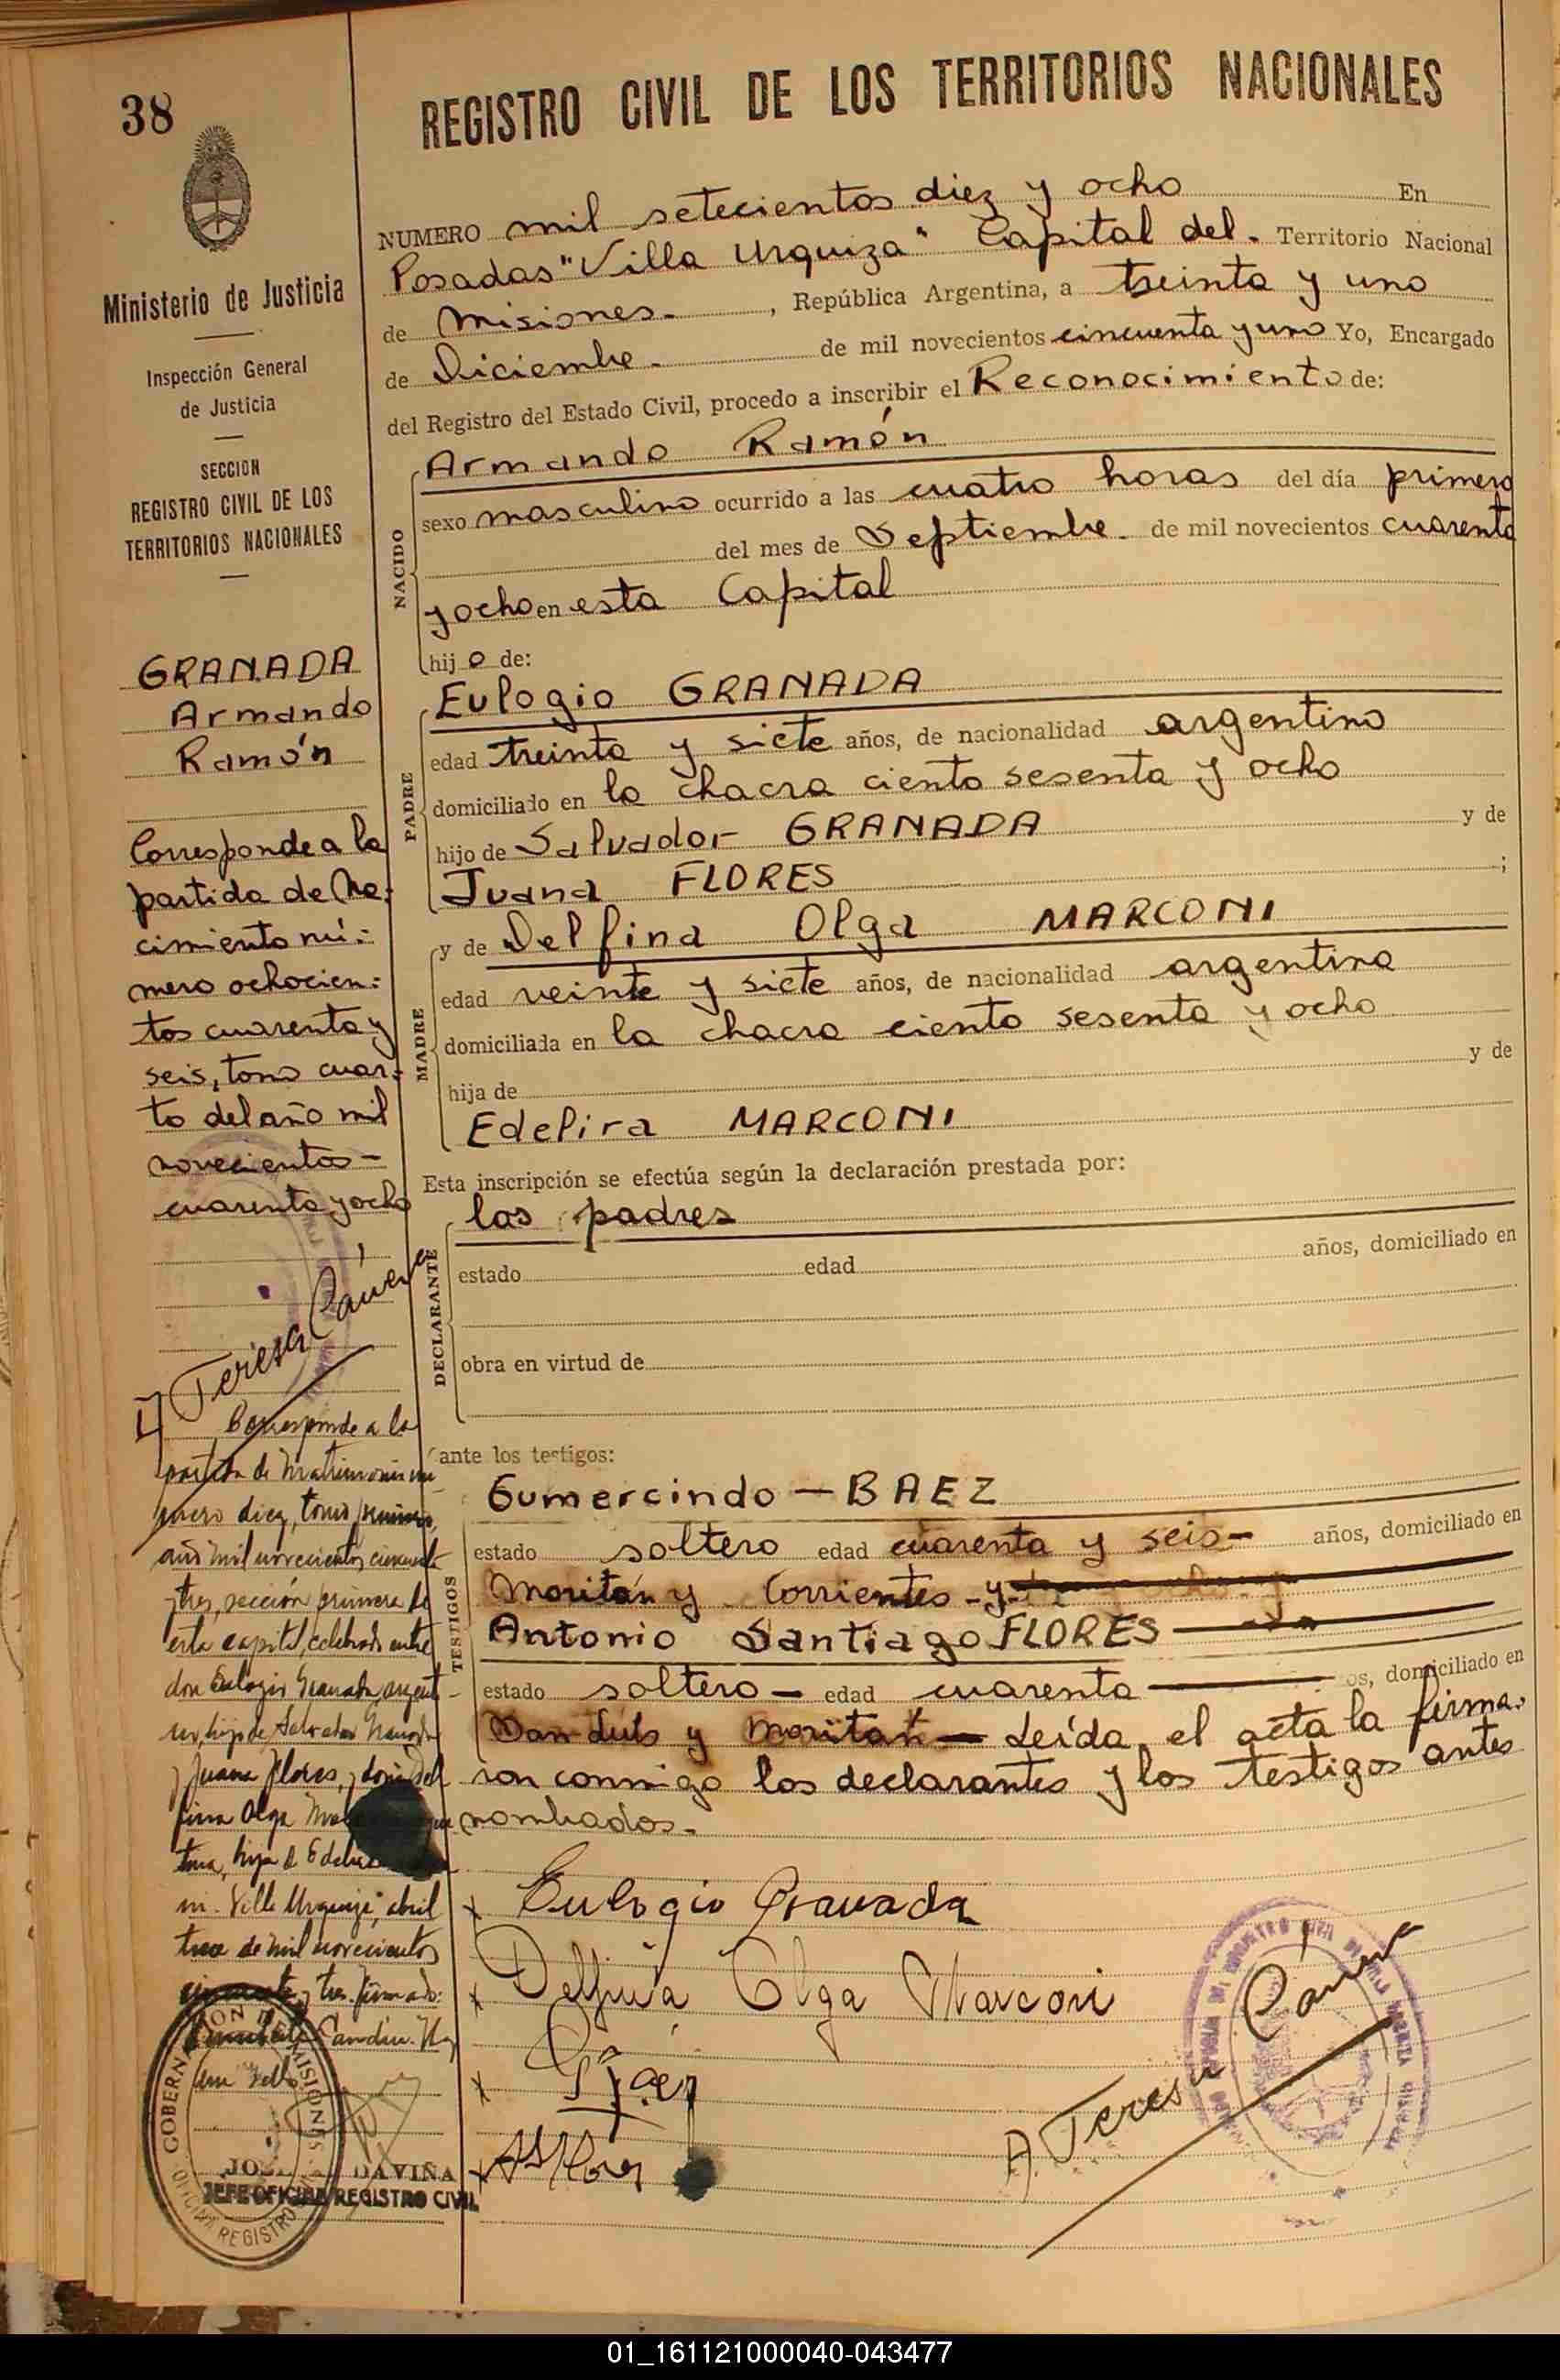 38
REGISTRO CIVIL DE LOS TERRITORIOS NACIONALES
Ministerio de Justicia
Inspección General
de Justicia
SECCION
REGISTRO CIVIL DE LOS
TERRITORIOS NACIONALES
GRANADA
Armando
Ramón
Corresponde a la
partida de Na-
cimiento nú-
mero ochocien-
tos cuarenta y
seis, tomo cuar-
to del año mil
novecientos
cuarenta y ocho
Teresa
Corresponde a la
partida de Matrimonio nu
mero diez, tomo primero,
año mil novecientos cincuenta
y tres, sección primera de
esta capital, celebrado entre
don Eulogio Granada, argenti-
no, hijo de Salvador Granada
y Juana Flores, y doña Del
fina Olga
tina, hija de
ni. Villa Urquiza, abril
trece de mil novecientos
y tres. Firmado:
GOBERNACION DE MISIONES
OFICINA REGISTRO
DAVIÑA
JEFE OFICINA REGISTRO CIVIL
NUMERO mil setecientos diez y ocho En
Posadas "Villa Urquiza" Capital del Territorio Nacional
de Misiones. , República Argentina, a treinta y uno
de Diciembre. de mil novecientos cincuenta y uno Yo, Encargado
del Registro del Estado Civil, procedo a inscribir el Reconocimiento de:
NACIDO
Armando Ramón
sexo masculino ocurrido a las cuatro horas del día primero
del mes de Septiembre. de mil novecientos cuarenta
y ocho en esta Capital
hijo de:
PADRE
Eulogio GRANADA
edad treinta y siete años, de nacionalidad argentino
domiciliado en la chacra ciento sesenta y ocho
hijo de Salvador GRANADA y de
Juana FLORES ;
MADRE
y de Delfina Olga MARCONI
edad veinte y siete años, de nacionalidad argentina
domiciliada en la chacra ciento sesenta y ocho
hija de y de
Edelira MARCONI
Esta inscripción se efectúa según la declaración prestada por:
DECLARANTE
los padres
estado edad años, domiciliado en
obra en virtud de
ante los testigos:
TESTIGOS
Gumercindo - BAEZ
estado soltero edad cuarenta y seis- años, domiciliado en
Moritán y Corrientes - y
Antonio Santiago FLORES
estado soltero - edad cuarenta os, domiciliado en
San Luis y Moritán - Leída el acta la firma-
ron conmigo los declarantes y los testigos antes
nombrados.
x Eulogio Granada
x Delfina Olga Marconi
x
x
A. Teresa
01_161121000040-043477